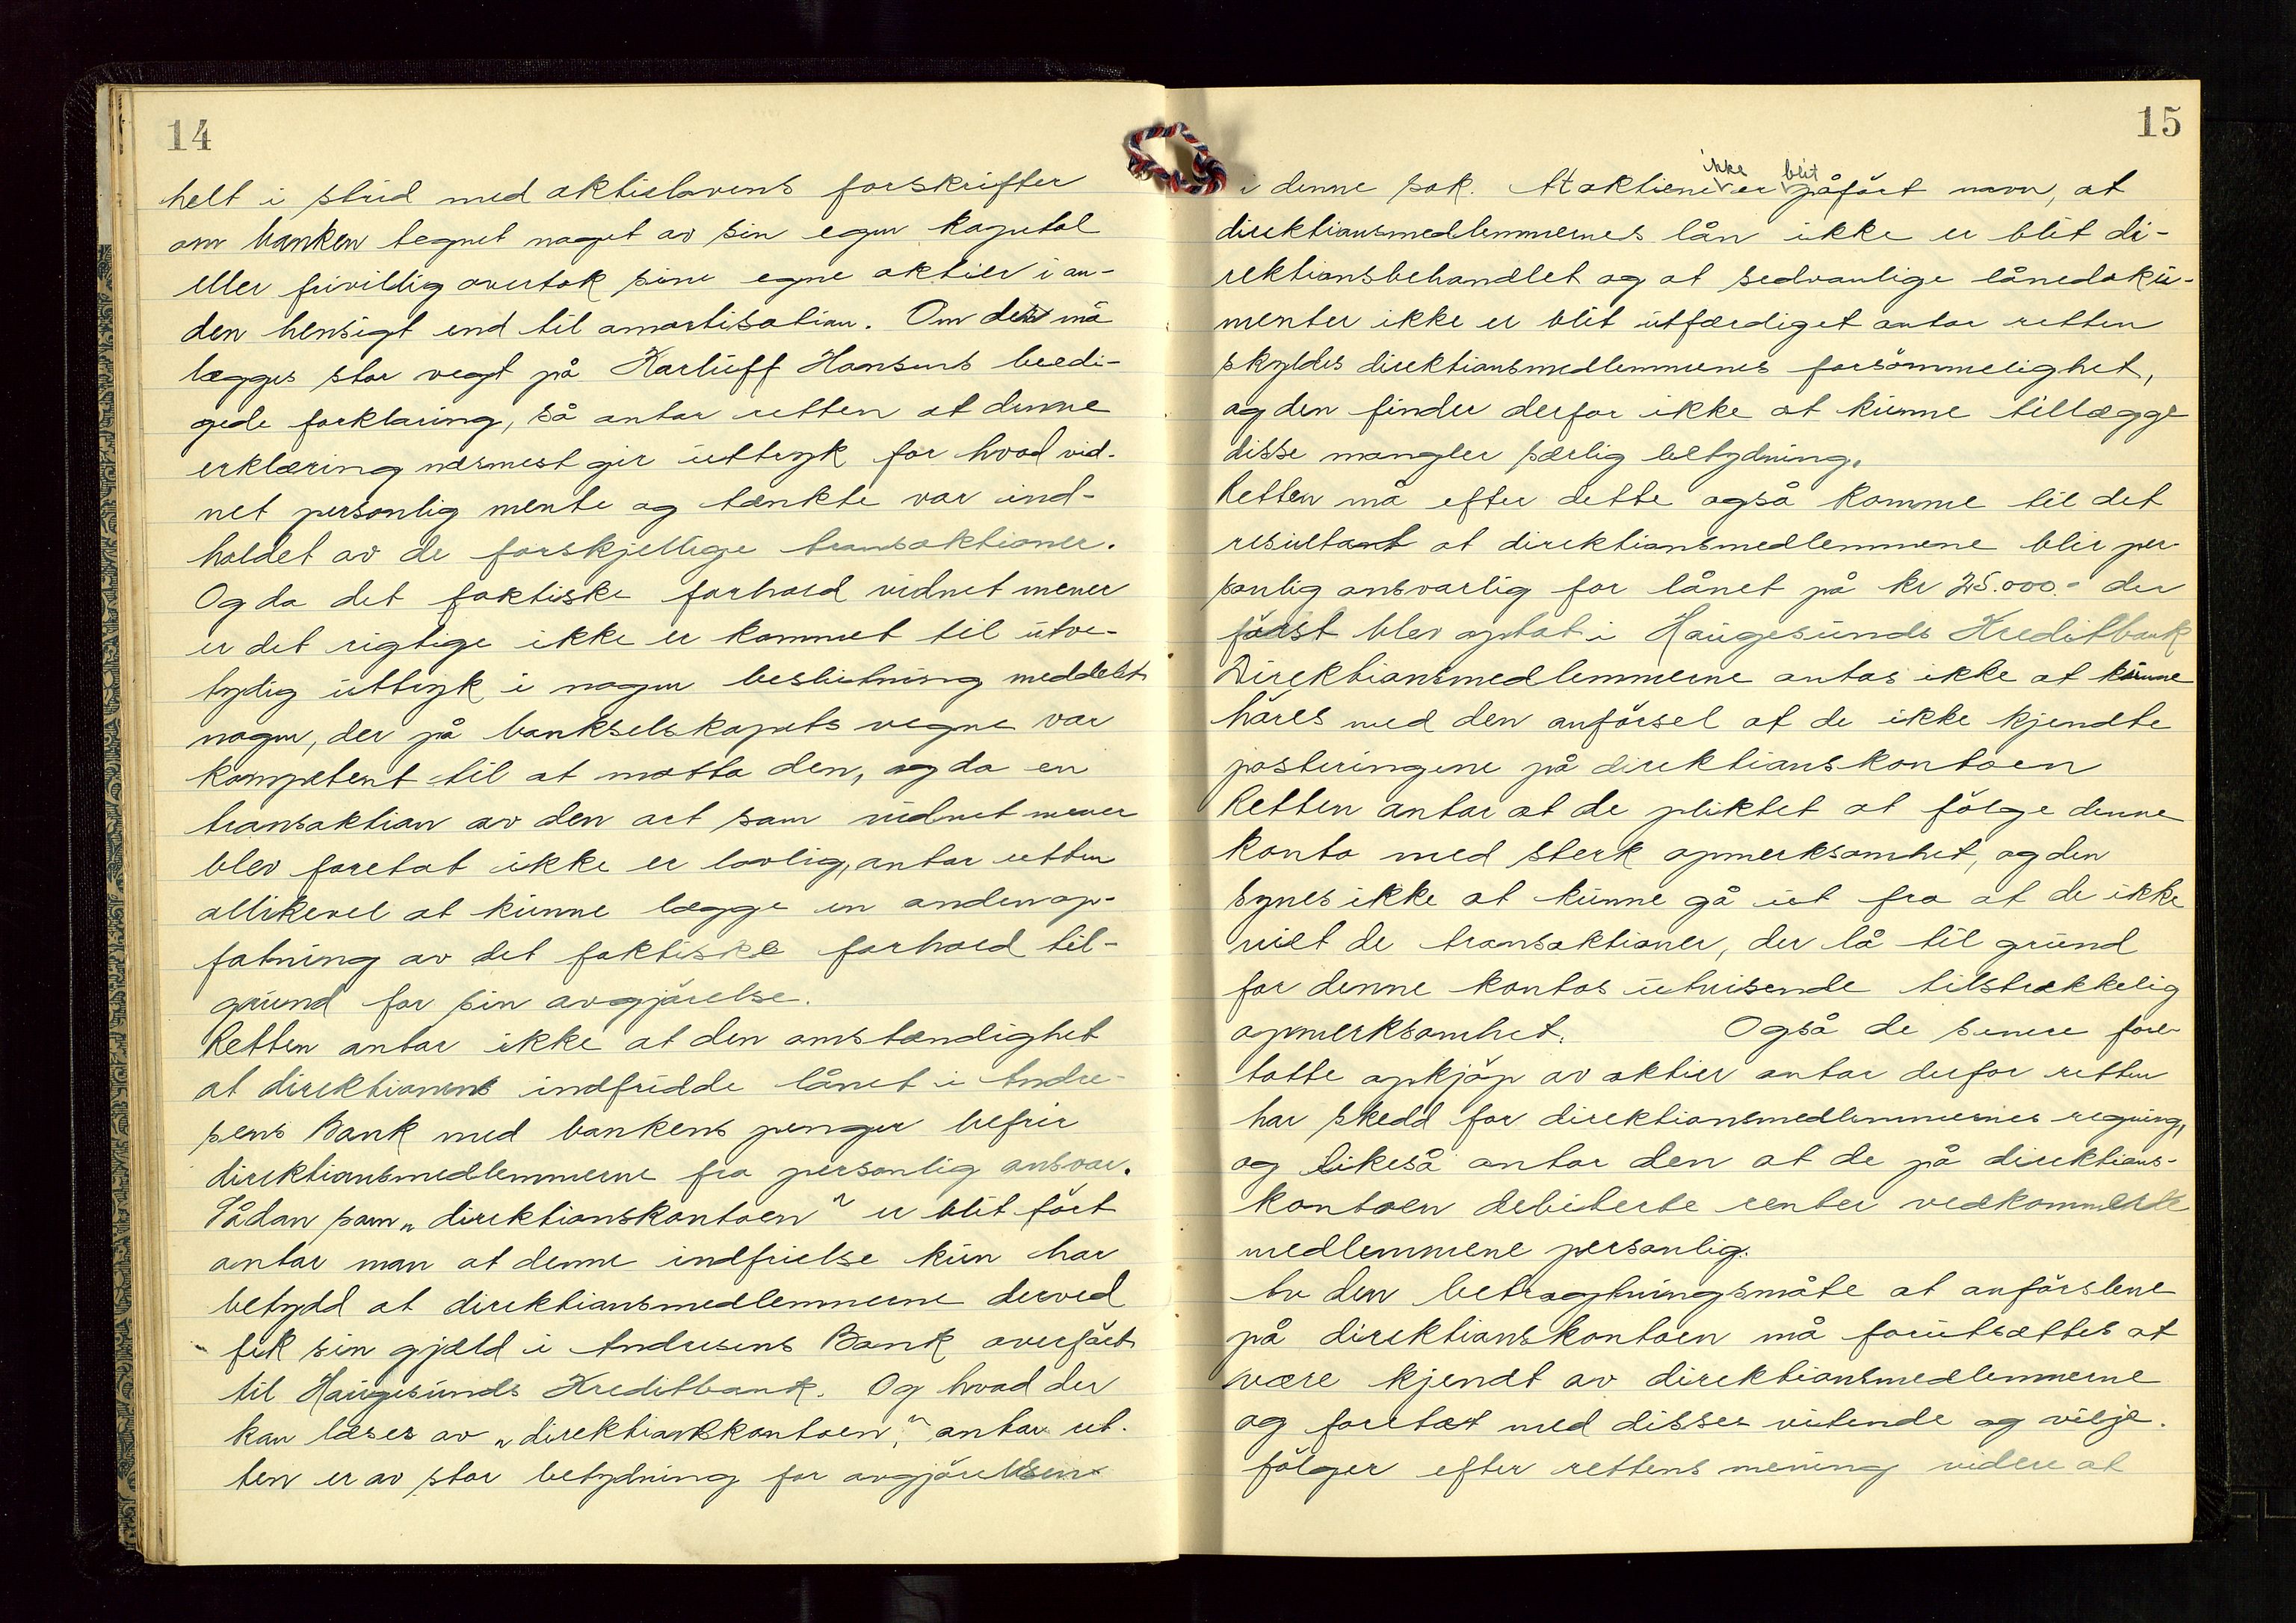 14
helt i strid med aktielovens forskrifter
om banken tegnet noget av sin egen kapital
eller frivillig overtok sine egne aktier i an-
den hensigt end til amortisation. Om der må
lægges stor vegt på Karluff Hansens beedi-
gede forklaring, så antar retten at denne
erklæring nærmest gir uttryk for hvad vid-
net personlig mente og tænkte var ind-
holdet av de forskjellige transaktioner.
Og da det faktiske forhold vidnet mener
er det rigtige ikke er kommet til utve-
tydig uttryk i nogen beslutning meddelt
nogen, der på bankselskapets vegne var
kompetent til at motta den, og da en
transaktion av den art som vidnet mener
blev foretat ikke er lovlig, antar retten
allikevel at kunne lægge en anden op-
fatning av det faktiske forhold til-
grund for sin avgjörelse.
Retten antar ikke at den omstændighet
at direktionens indfridde lånet i Andre-
sens Bank med bankens penger befrir
direktionsmedlemmerne fra personlig ansvar.
Sådan som „direktionskontoen" er blit fört
antar man at denne indfrielse kun har
betydd at direktionsmedlemmerne derved
fik sin gjæld i Andresens Bank overfört
til Haugesunds Kreditbank. Og hvad der
kan læses av „direktionskontoen," antar ret-
ten er av stor betydning for avgjörelsen
15
i denne sak. At aktiene ikke er blit påfört navn, at
direktionsmedlemmernes lån ikke er blit di-
rektionsbehandlet og at sedvanlige lånedoku-
menter ikke er blit utfærdiget antar retten
skyldes direktionsmedlemmenes forsömmelighet,
og den finder derfor ikke at kunne tillægge
disse mangler særlig betydning.
Retten må efter dette også komme til det
resultat at direktionsmedlemmene blir per-
sonlig ansvarlig for lånet på kr 25.000.- der
först blev optat i Haugesunds Kreditbank
Direktionsmedlemmerne antas ikke at kunne
höres med den anförsel at de ikke kjendte
posteringene på direktionskontoen
Retten antar at de pliktet at fölge denne
konto med sterk opmerksomhet, og den
synes ikke at kunne gå ut fra at de ikke
viet de transaktioner, der lå til grund
for denne kontos utvisende tilstrækkelig
opmerksomhet. Også de senere fore-
tatte opkjöp av aktier antar derfor retten
har skedd for direktionsmedlemmernes regning,
og likeså antar den at de på direktions-
kontoen debiterte renter vedkommende
medlemmene personlig.
Av den betragtningsmåte at anförslene
på direktionskontoen må forutsættes at
være kjendt av direktionsmedlemmerne
og foretat med disses vitende og vilje.
fölger efter rettens mening videre at